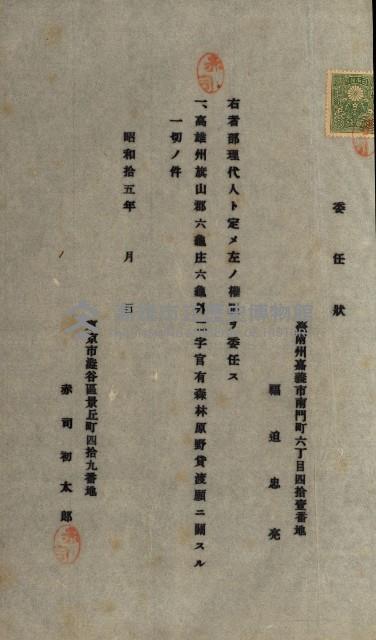 委任狀
臺南州嘉義市南門町六丁目四拾壹番地
福迫忠亮
右者部理代人ト定メ左ノ權限ヲ委任ス
一、高雄州旗山郡六龜庄六龜外二字官有森林原野貸渡願ニ關スル
一切ノ件
昭和拾五年 月 日
東京市澁谷區景丘町四拾九番地
赤司初太郎
赤司
赤司